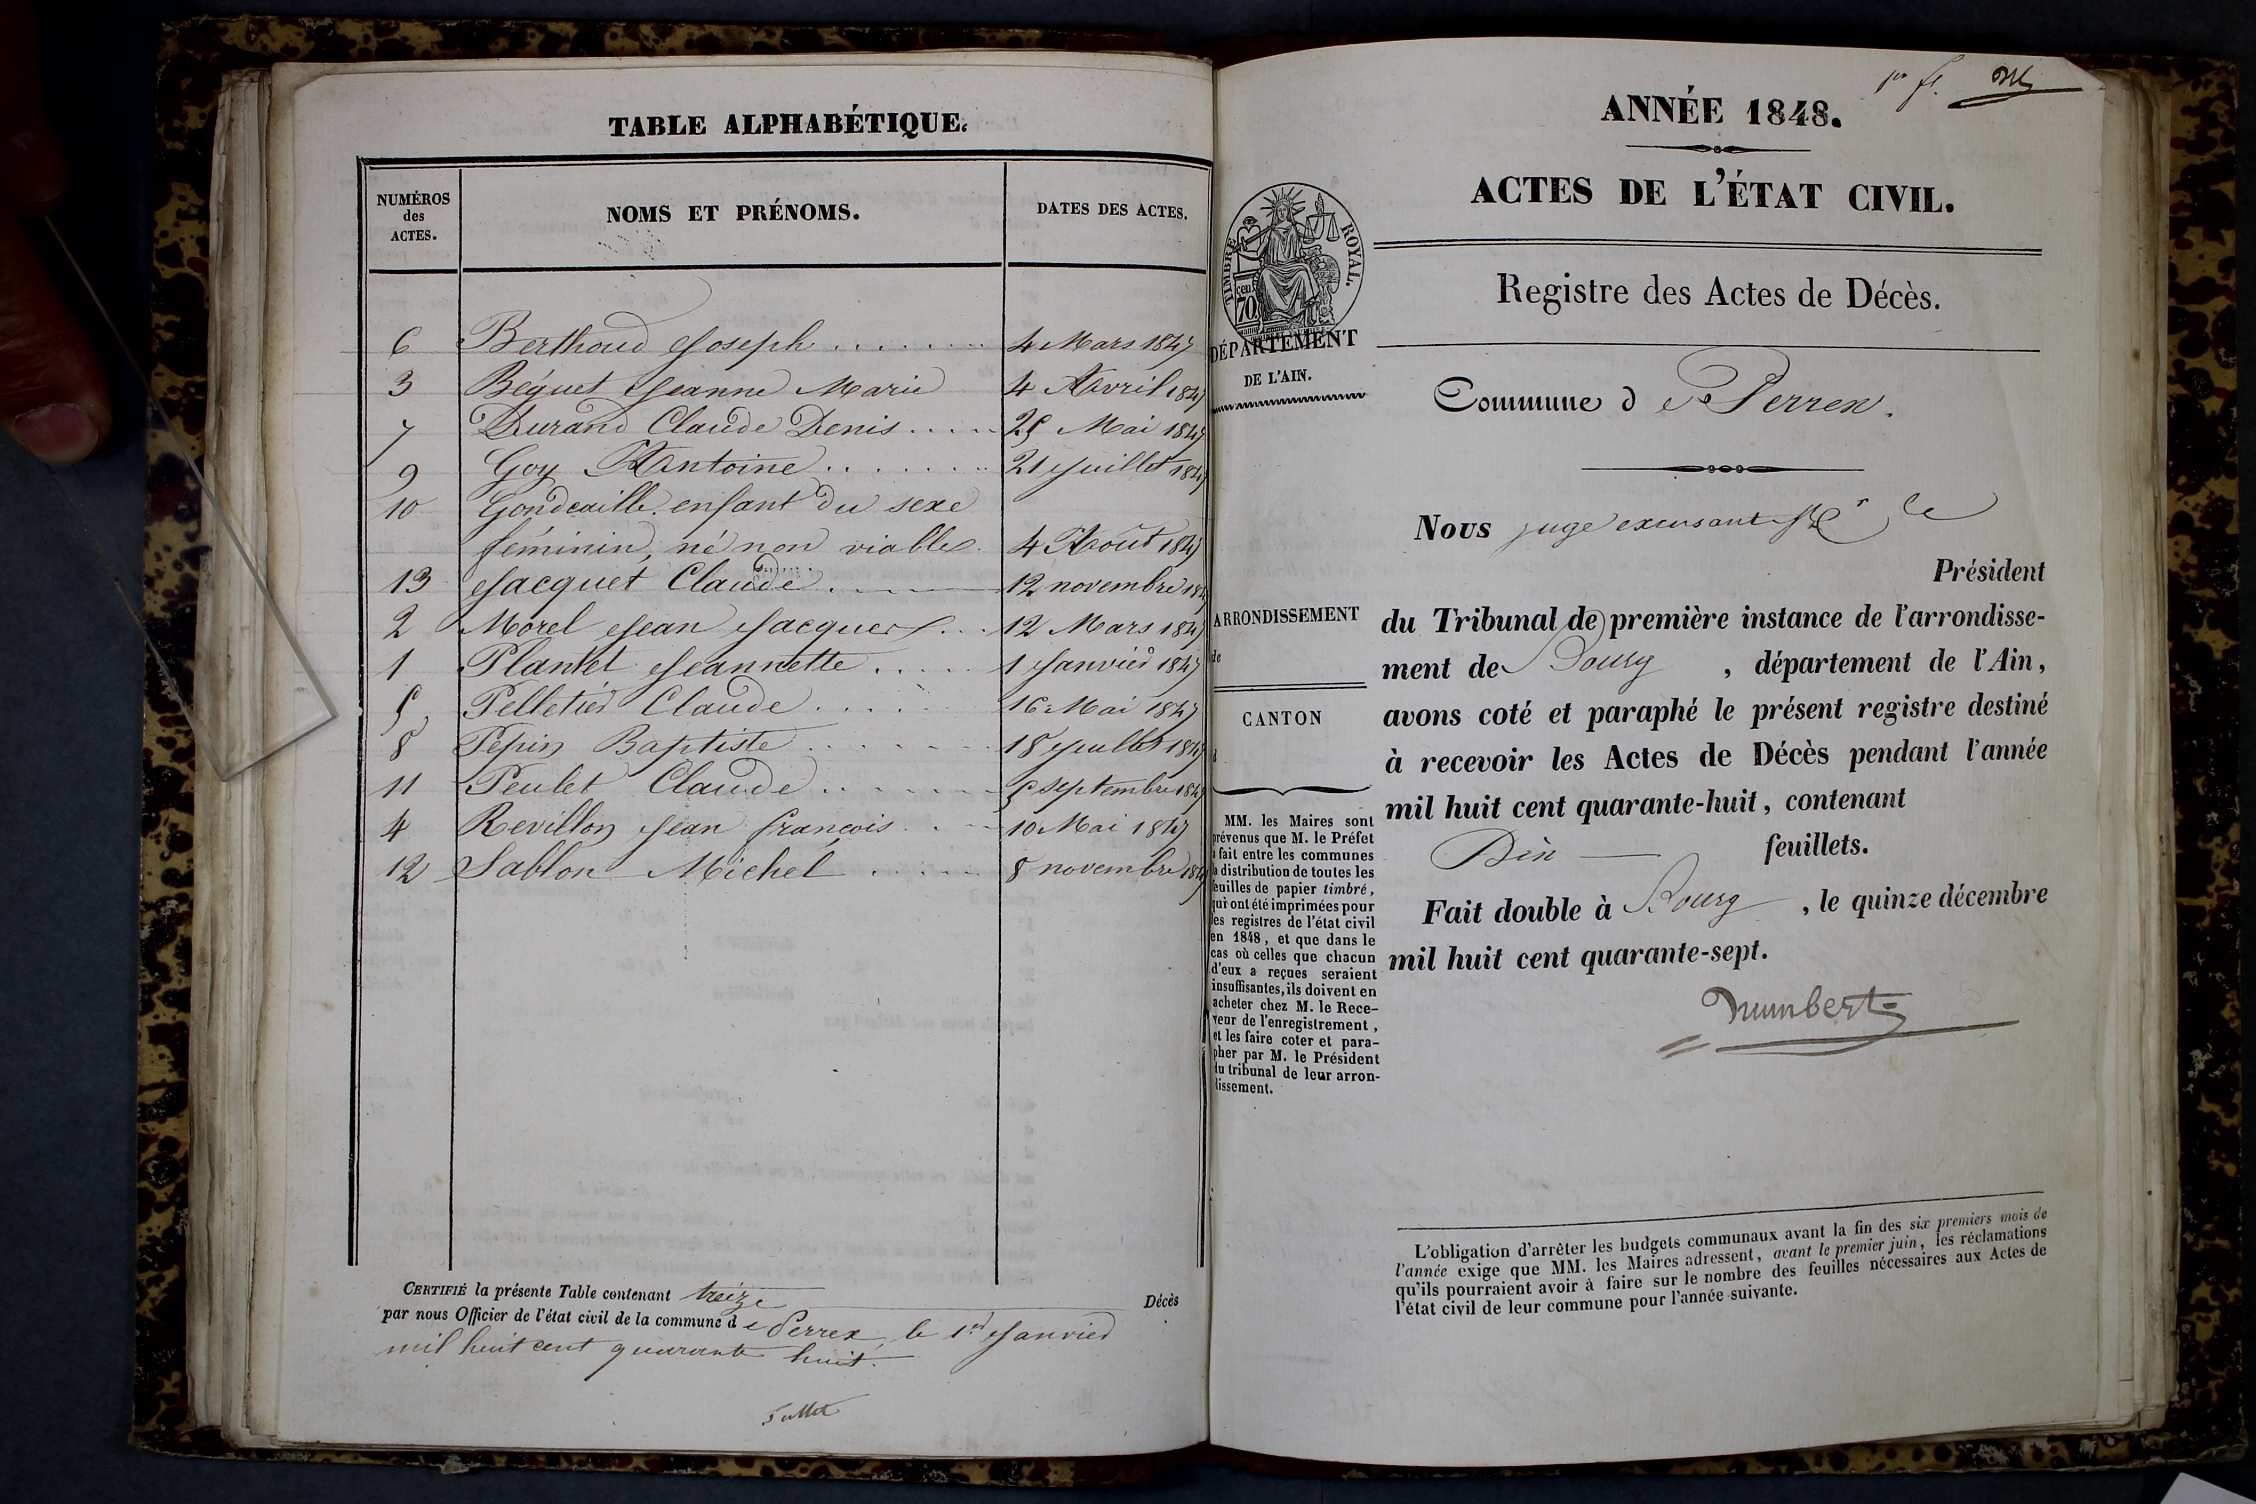 TABLE ALPHABÉTIQUE.
NUMÉROS
des
ACTES.
NOMS ET PRÉNOMS.
DATES DES ACTES.
6 Berthoud Joseph ........ 4 Mars 1847
3 Béguet Jeanne Marie 4 Avril 1847
7 Durand Claude Denis ..... 25 Mai 1847
9 Goy Antoine ........ 21 Juillet 1847
10 Gondcaille enfant du sexe
féminin, né non viable. 4 Août 1847
13 Jacquet Claude. 12 novembre 1847
2 Morel Jean Jacques ... 12 Mars 1847
1 Plantet Jeannette ..... 1 Janvier 1847
5 Pelletier Claude ..... 16 Mai 1847
8 Pepin Baptiste ....... 18 Juillet 1847
11 Peulet Claude ....... 5 septembre 1847
4 Revillon Jean françois ... 10 Mai 1847
12 Sablon Michel ...... 8 novembre 1847
CERTIFIÉ la présente Table contenant treize Décès
par nous Officier de l'état civil de la commune de Perrex, le 1er Janvier
mil huit cent quarante huit.
1er ft.
ANNÉE 1848.
ACTES DE L'ÉTAT CIVIL.
TIMBRE ROYAL.
cen. 70
Registre des Actes de Décès.
DÉPARTEMENT
DE L'AIN.
Commune de Perrex.
Nous juge excusant Mr le
Président
ARRONDISSEMENT
de
CANTON
d
du Tribunal de première instance de l'arrondisse-
ment de Bourg, département de l'Ain,
avons coté et paraphé le présent registre destiné
à recevoir les Actes de Décès pendant l'année
mil huit cent quarante-huit, contenant
Dix feuillets.
Fait double à Bourg, le quinze décembre
mil huit cent quarante-sept.
humbert
MM. les Maires sont
prévenus que M. le Préfet
a fait entre les communes
la distribution de toutes les
feuilles de papier timbré,
qui ont été imprimées pour
les registres de l'état civil
en 1848, et que dans le
cas où celles que chacun
d'eux a reçues seraient
insuffisantes, ils doivent en
acheter chez M. le Rece-
veur de l'enregistrement,
et les faire coter et para-
pher par M. le Président
du tribunal de leur arron-
dissement.
L'obligation d'arrêter les budgets communaux avant la fin des six premiers mois de
l'année exige que MM. les Maires adressent, avant le premier juin, les réclamations
qu'ils pourraient avoir à faire sur le nombre des feuilles nécessaires aux Actes de
l'état civil de leur commune pour l'année suivante.